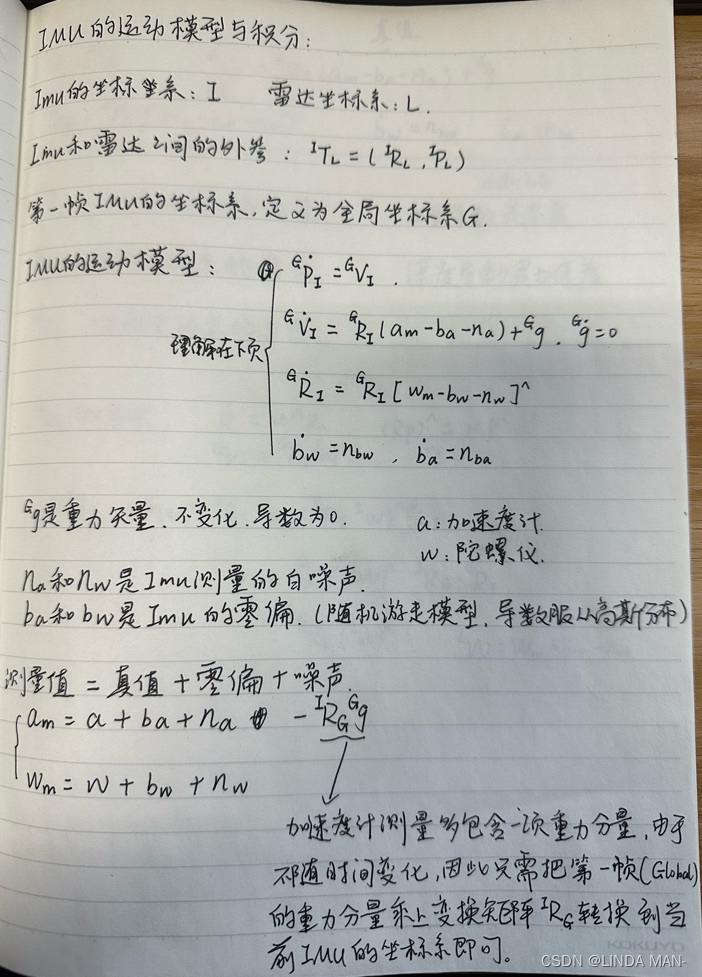 IMU的运动模型与积分:
Imu的坐标系: I 雷达坐标系: L.
Imu和雷达之间的外参: ᴵT_L = (ᴵR_L, ᴵP_L)
第一帧IMU的坐标系,定义为全局坐标系G.
IMU的运动模型: ᴳṗ_I = ᴳV_I .
理解在下页 ᴳv̇_I = ᴳR_I(a_m-b_a-n_a)+ᴳg . ᴳġ=0
ᴳṘ_I = ᴳR_I[w_m-b_w-n_w]^
ḃ_w = n_bw , ḃ_a = n_ba
ᴳg是重力矢量.不变化.导数为0. a:加速度计.
w:陀螺仪.
n_a和n_w是Imu测量的白噪声.
b_a和b_w是Imu的零偏.(随机游走模型,导数服从高斯分布)
测量值 = 真值 + 零偏 + 噪声.
a_m = a + b_a + n_a - ᴵR_G ᴳg
w_m = w + b_w + n_w
加速度计测量多包含一项重力分量,由于
不随时间变化,因此只需把第一帧(Global)
的重力分量乘上变换矩阵ᴵR_G转换到当
前IMU的坐标系即可。
CSDN @LINDA MAN-